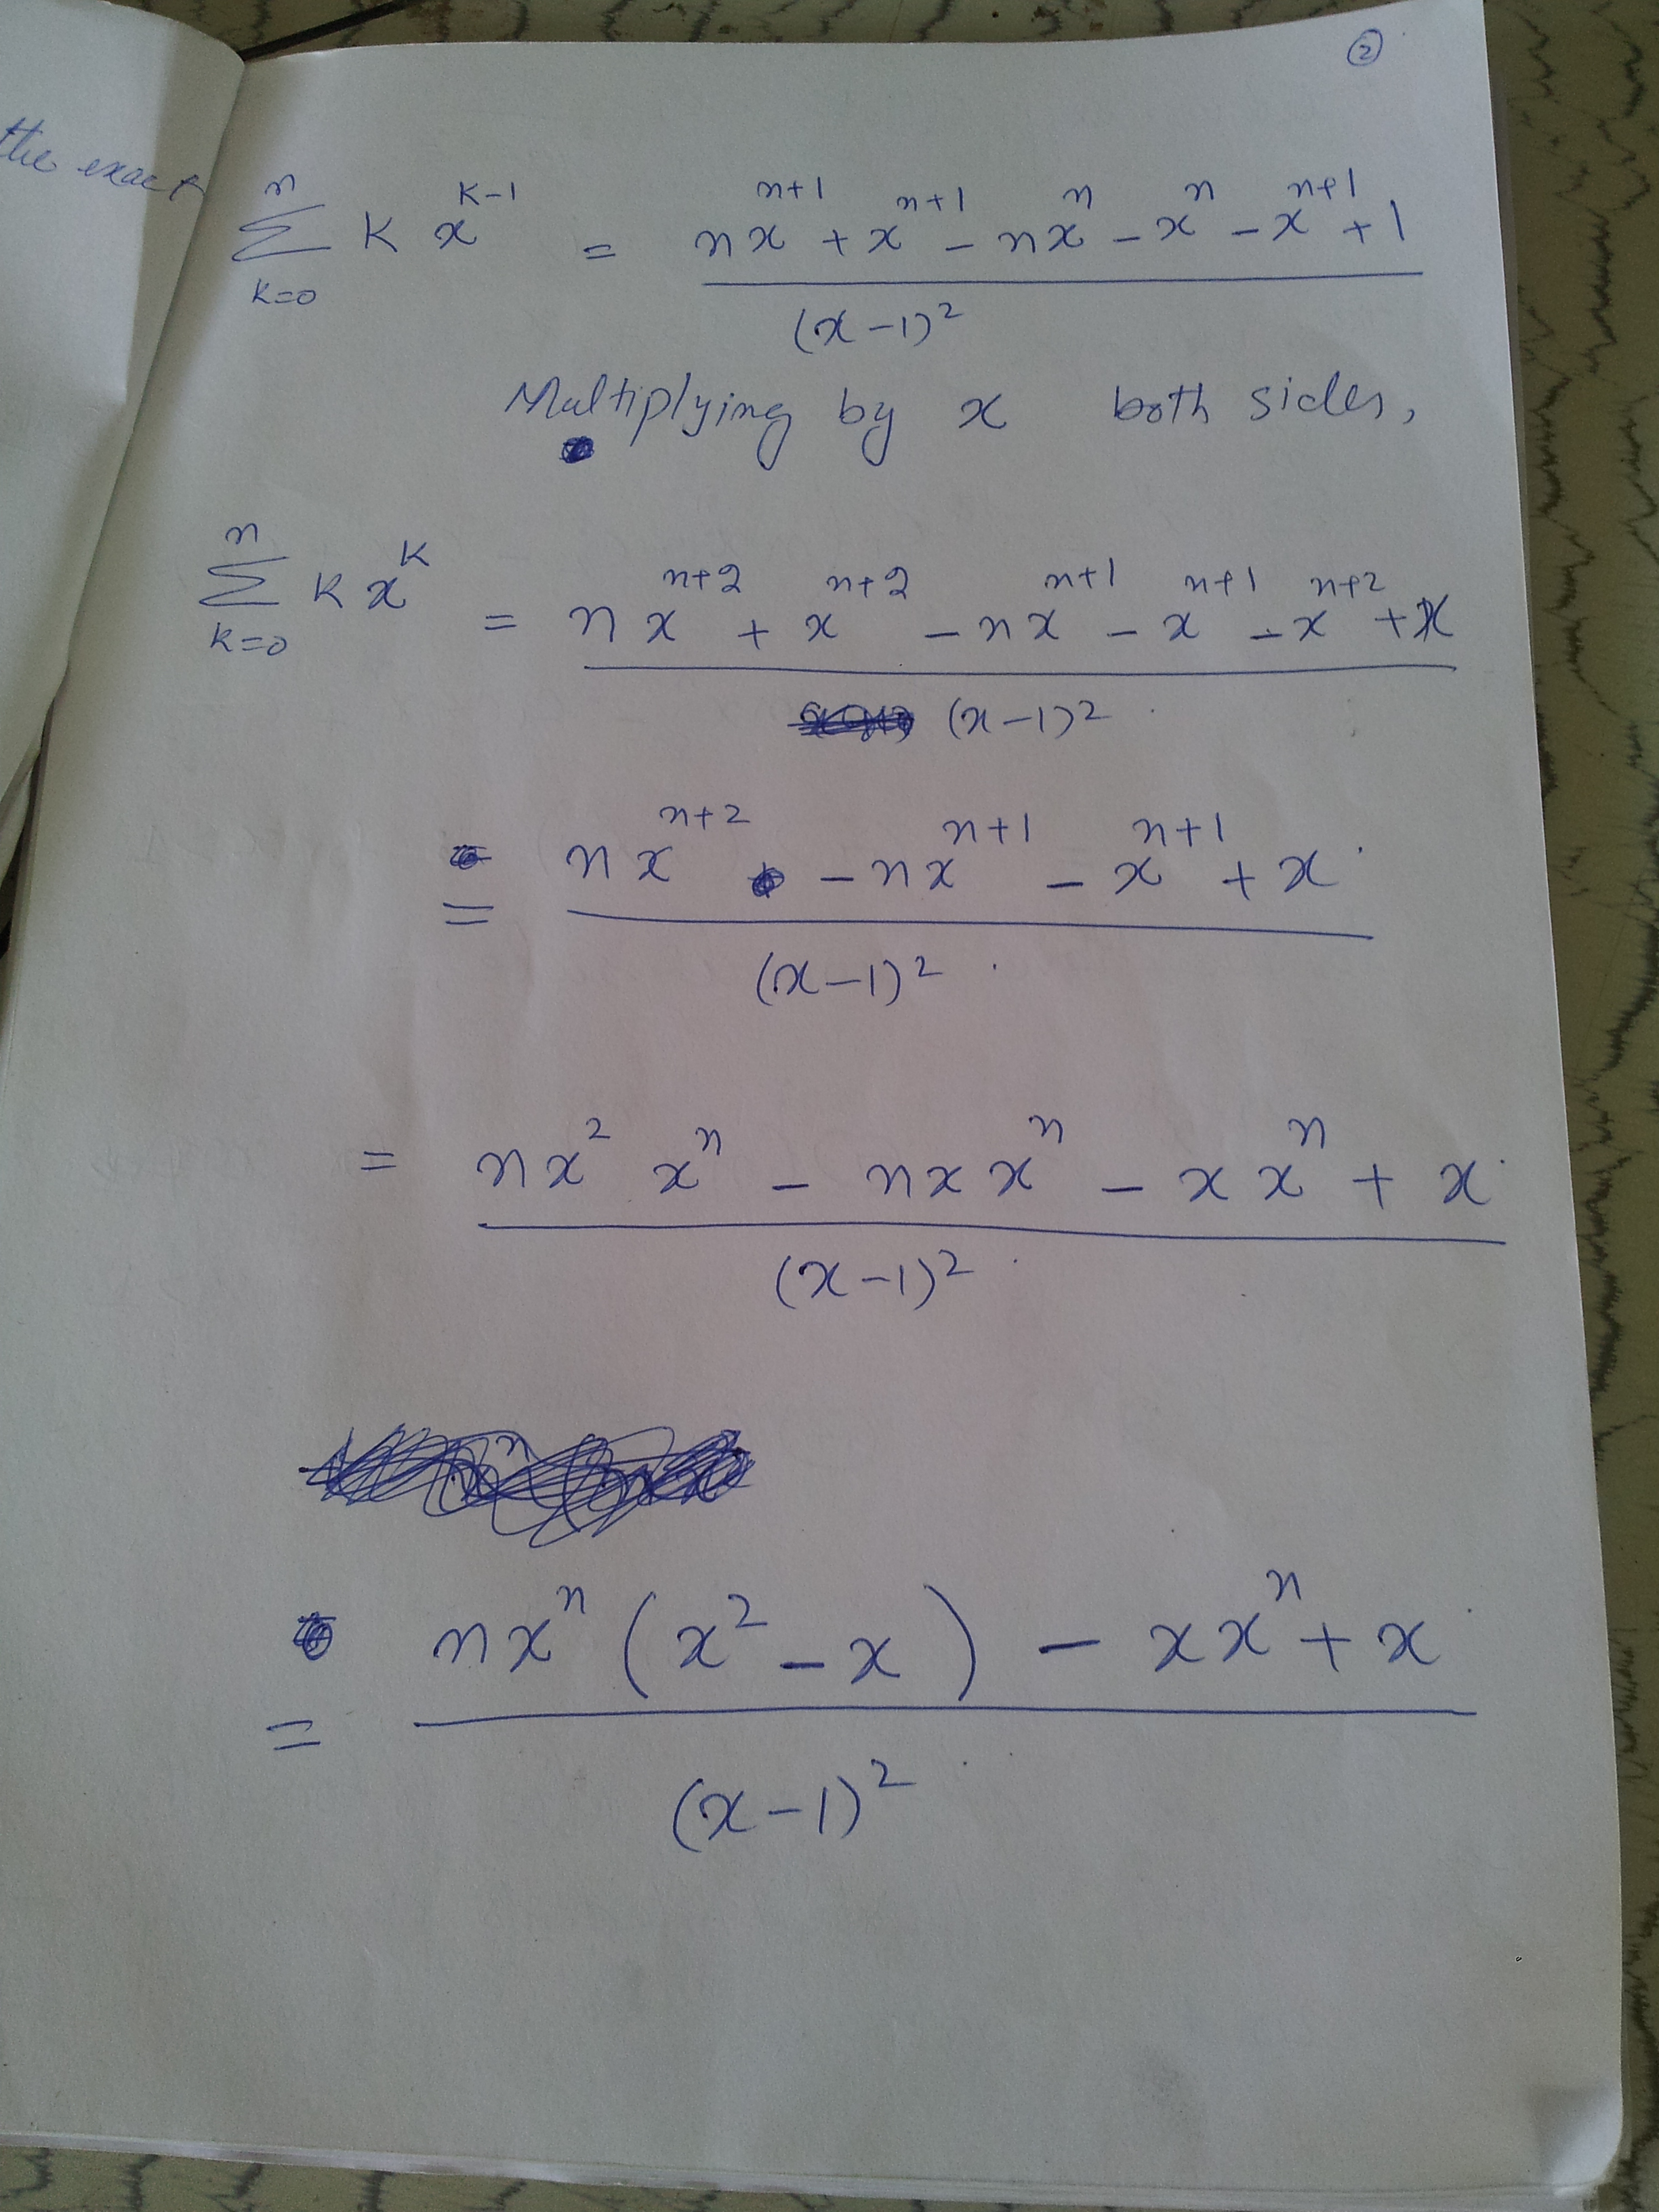 ②
the exact
n
∑ k x^{k-1} = (n x^{n+1} + x^{n+1} - n x^n - x^n - x^{n+1} + 1) / (x-1)^2
k=0
Multiplying by x both sides,
n
∑ k x^k = (n x^{n+2} + x^{n+2} - n x^{n+1} - x^{n+1} - x^{n+2} + x) / (x-1)^2
k=0
= (n x^{n+2} - n x^{n+1} - x^{n+1} + x) / (x-1)^2
= (n x^2 x^n - n x x^n - x x^n + x) / (x-1)^2
= (n x^n (x^2 - x) - x x^n + x) / (x-1)^2